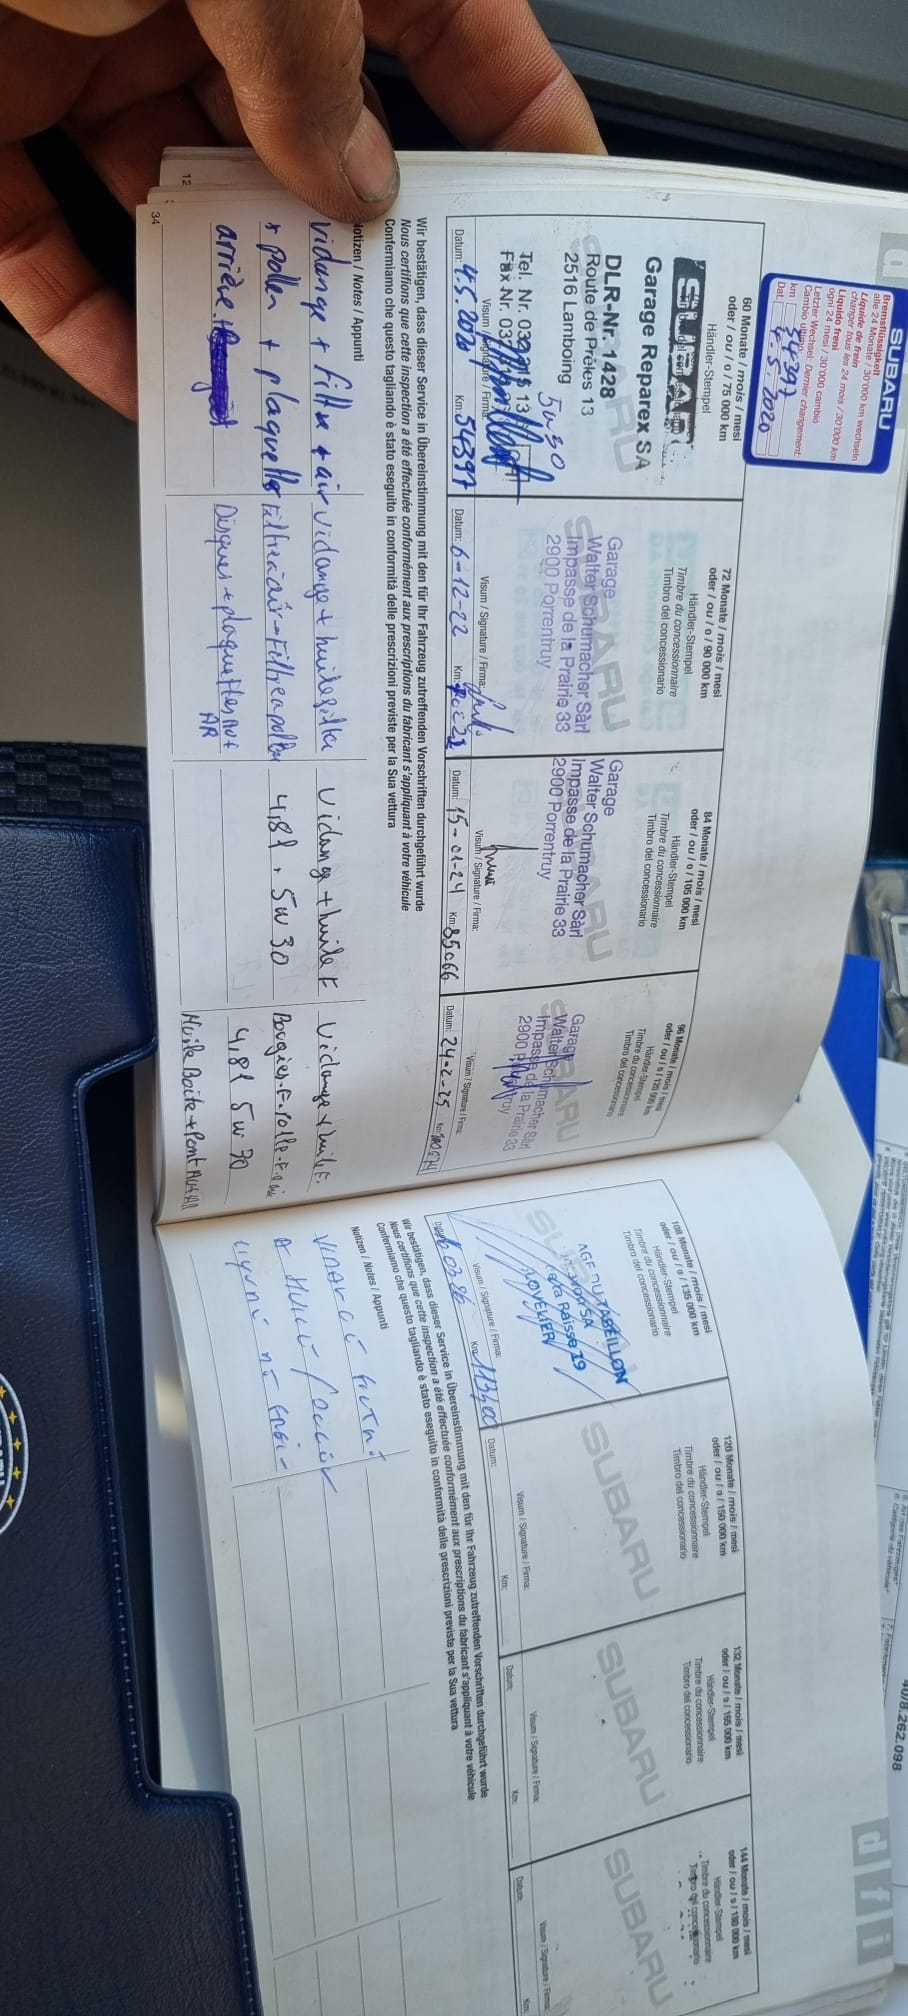 SUBARU
Bremsflüssigkeit
alle 24 Monate / 30'000 km wechseln
Liquide de frein
changer tous les 24 mois / 30'000 km
Liquido freni
ogni 24 mesi / 30'000 cambio
Letzter Wechsel: Dernier changement:
Cambio ultimo
km 54397
Dat. 4.5.2020
60 Monate / mois / mesi
oder / ou / o / 75 000 km
Händler-Stempel
Garage Reparex SA
DLR-Nr. 1428
Route de Prêles 13
2516 Lamboing
5w30
Tel. Nr. 032 315 13
Fax Nr. 032
Visum / Signature / Firma:
Datum: 4.5.2020 Km: 54397
72 Monate / mois / mesi
oder / ou / o / 90 000 km
Händler-Stempel
Timbre du concessionnaire
Timbro del concessionario
SUBARU
Garage
Walter Schumacher Sàrl
Impasse de la Prairie 33
2900 Porrentruy
Visum / Signature / Firma:
Datum: 6-12-22 Km:
84 Monate / mois / mesi
oder / ou / o / 105 000 km
Händler-Stempel
Timbre du concessionnaire
Timbro del concessionario
Garage
Walter Schumacher Sàrl
Impasse de la Prairie 33
2900 Porrentruy
Visum / Signature / Firma:
Datum: 15-01-24 Km: 85066
96 Monate / mois / mesi
oder / ou / o / 120 000 km
Händler-Stempel
Timbre du concessionnaire
Timbro del concessionario
SUBARU
Garage
Walter Schumacher Sàrl
Impasse de la Prairie 33
2900 Porrentruy
Visum / Signature / Firma:
Datum: 24-2-25 Km:
Wir bestätigen, dass dieser Service in Übereinstimmung mit den für Ihr Fahrzeug zutreffenden Vorschriften durchgeführt wurde
Nous certifions que cette inspection a été effectuée conformément aux prescriptions du fabricant s'appliquant à votre véhicule
Confermiamo che questo tagliando è stato eseguito in conformità delle prescrizioni previste per la Sua vettura
Notizen / Notes / Appunti
Vidange + filtre + air
+ pollen + plaquettes
arrière
Vidange + huile filtre
Filtre à air + Filtre a pollen
Disques + plaquettes AV + AR
Vidange + huile F
4,8l . 5w30
Vidange + huile F.
Bougies
4,8l 5w30
Huile Boite + Pont
34
12
108 Monate / mois / mesi
oder / ou / o / 135 000 km
Händler-Stempel
Timbre du concessionnaire
Timbro del concessionario
SUBARU
Visum / Signature / Firma:
Km:
120 Monate / mois / mesi
oder / ou / o / 150 000 km
Händler-Stempel
Timbre du concessionnaire
Timbro del concessionario
SUBARU
Datum:
Visum / Signature / Firma:
Km:
132 Monate / mois / mesi
oder / ou / o / 165 000 km
Händler-Stempel
Timbre du concessionnaire
Timbro del concessionario
SUBARU
Datum:
Visum / Signature / Firma:
Km:
144 Monate / mois / mesi
oder / ou / o / 180 000 km
Händler-Stempel
Timbre du concessionnaire
Timbro del concessionario
SUBARU
Datum:
Visum / Signature / Firma:
Km:
Wir bestätigen, dass dieser Service in Übereinstimmung mit den für Ihr Fahrzeug zutreffenden Vorschriften durchgeführt wurde
Nous certifions que cette inspection a été effectuée conformément aux prescriptions du fabricant s'appliquant à votre véhicule
Confermiamo che questo tagliando è stato eseguito in conformità delle prescrizioni previste per la Sua vettura
Notizen / Notes / Appunti
d f i
40/8.262.098